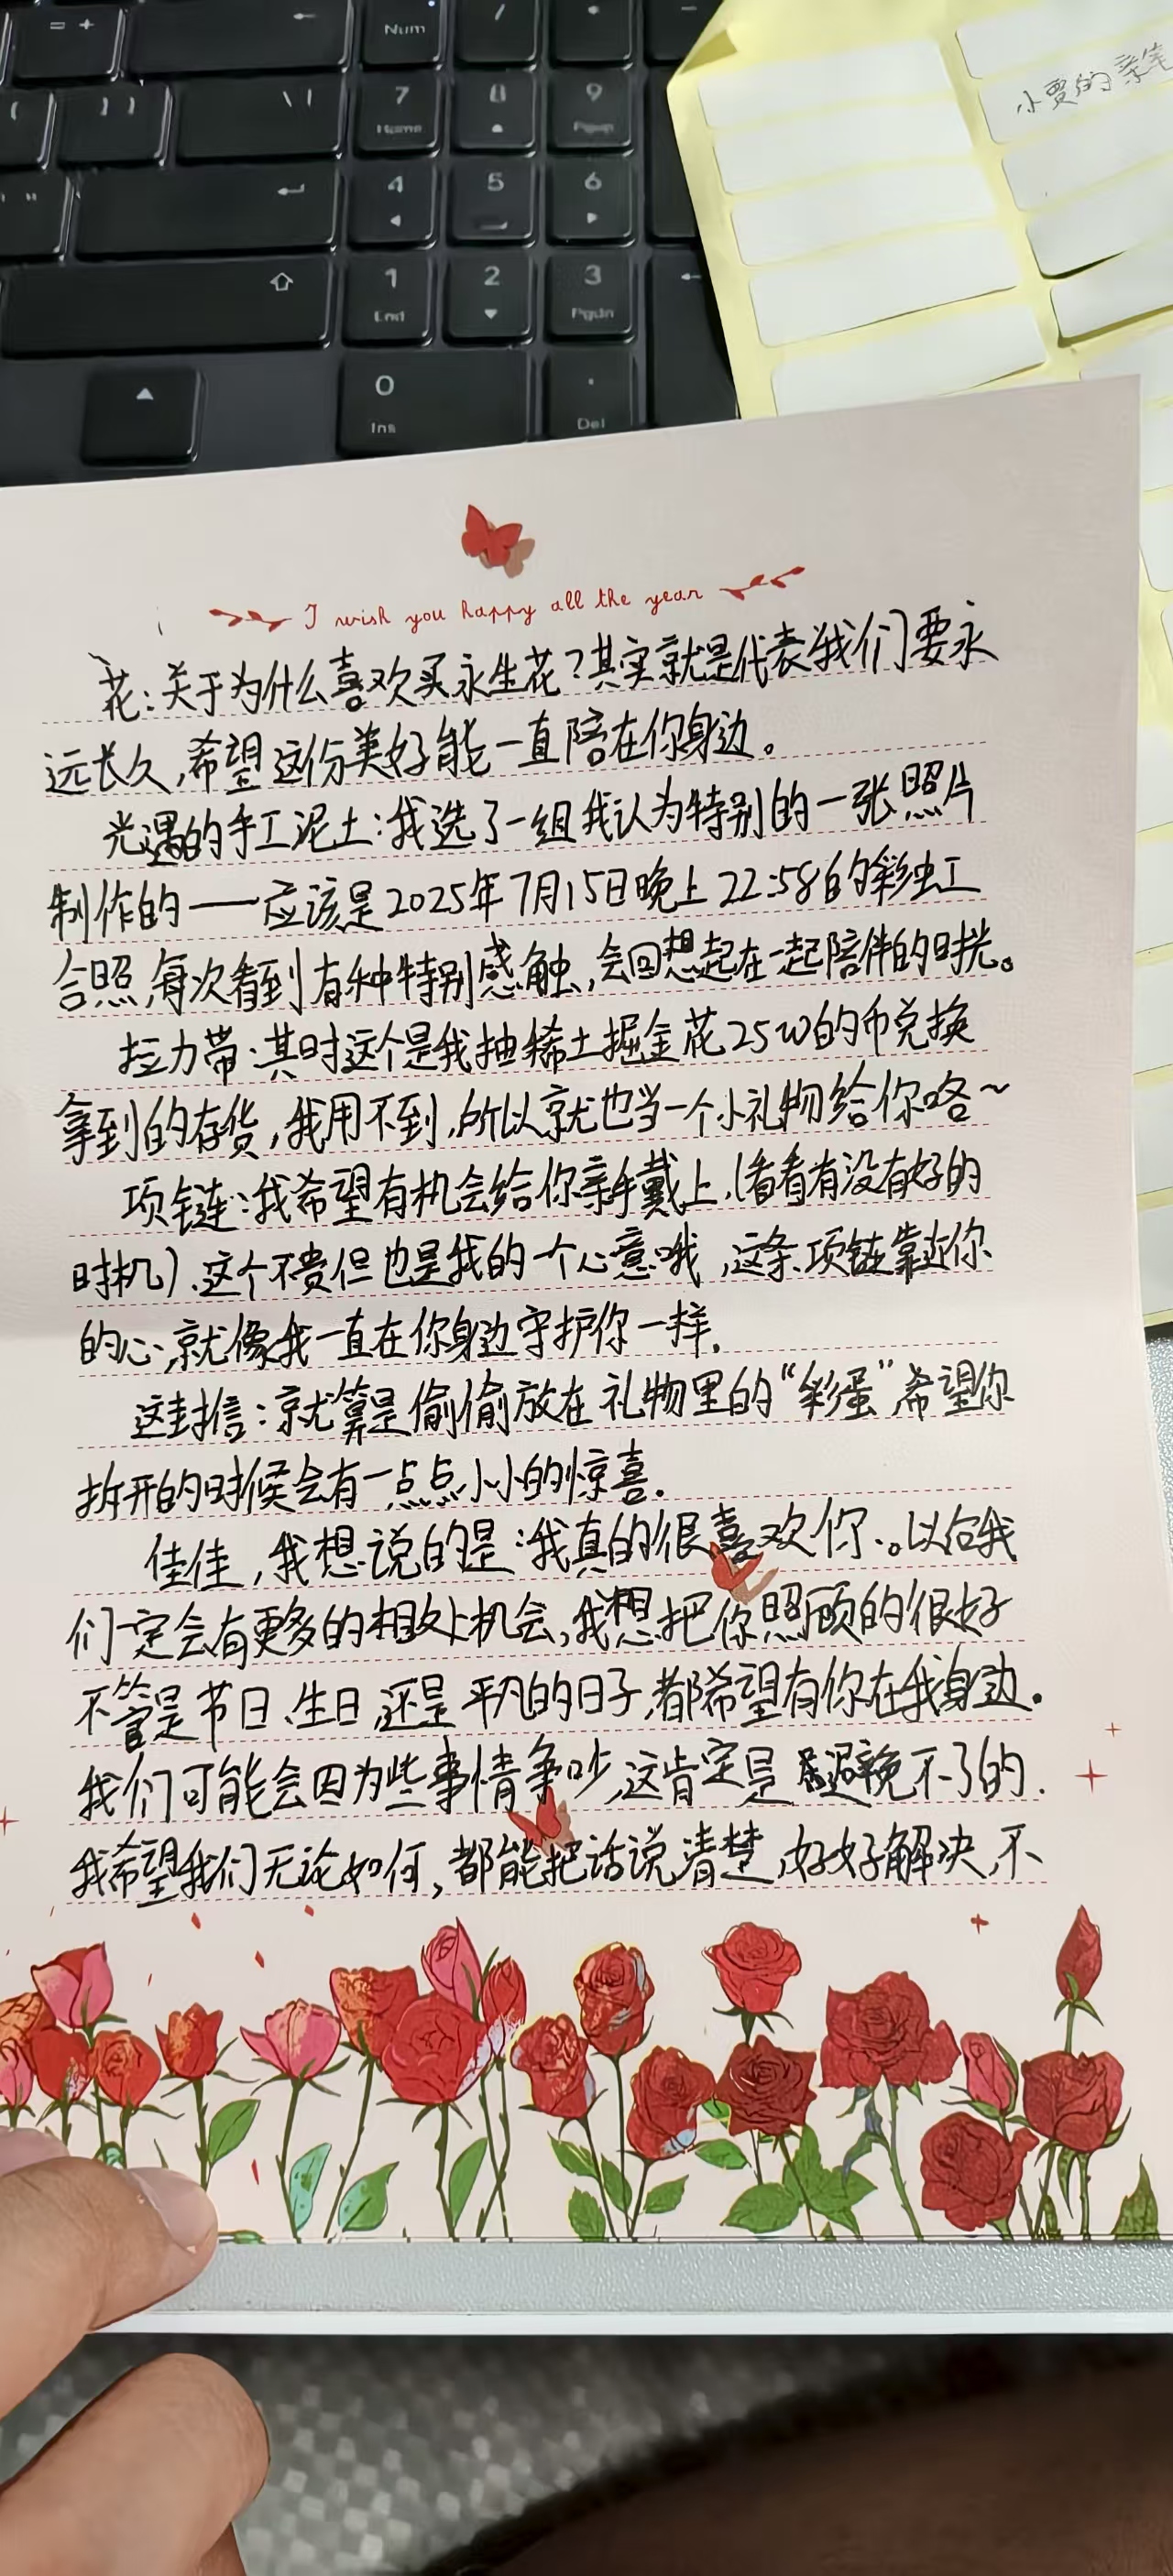 = +
←
Num
/
*
-
{
} ]
\ |
7
8
9
Home
Pgup
"
4
5
6
1
2
3
End
Pgdn
0
.
Ins
Del
小贾的亲笔
I wish you happy all the year
花:关于为什么喜欢买永生花?其实就是代表我们要永
远长久,希望这份美好能一直陪在你身边。
光遇的手工泥土:我选了一组我认为特别的一张照片
制作的——应该是2025年7月15日晚上22:58的彩虹
合照,每次看到有种特别感触,会回想起在一起陪伴的时光。
拉力带:其时这个是我抽稀土掘金花25w的币兑换
拿到的存货,我用不到,所以就也当一个小礼物给你咯~
项链:我希望有机会给你亲手戴上,(看看有没有好的
时机).这个不贵但也是我的一个心意哦,这条项链靠近你
的心,就像我一直在你身边守护你一样.
这封信:就算是偷偷放在礼物里的“彩蛋”希望你
拆开的时候会有一点点小小的惊喜.
佳佳,我想说的是:我真的很喜欢你.。以后我
们一定会有更多的相处机会,我想把你照顾的很好
不管是节日、生日,还是平凡的日子,都希望有你在我身边.
我们可能会因为些事情争吵,这肯定是避免不了的.
我希望我们无论如何,都能把话说清楚,好好解决,不